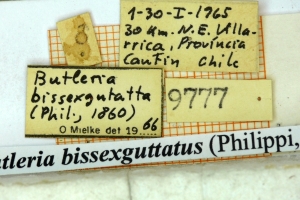 8
1-30-I-1965
30 Km. N.E. Villa-
rrica, Provincia
Cautin Chile
Butleria
bissexgutatta
(Phil., 1860)
O Mielke det 19 66
9777
utleria bissexguttatus (Philippi,